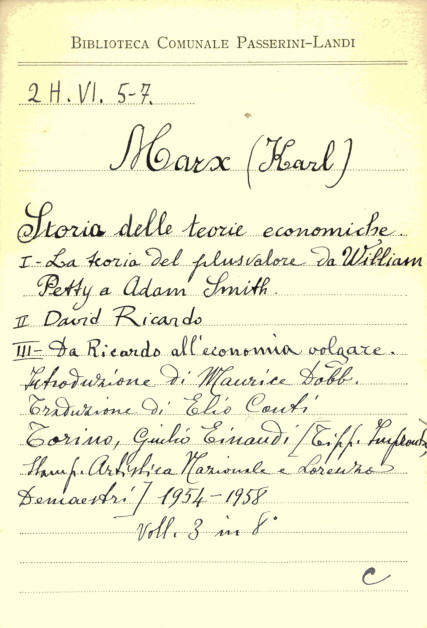 BIBLIOTECA COMUNALE PASSERINI-LANDI
2 H. VI. 5-7.
Marx (Karl)
Storia delle teorie economiche.
I - La teoria del plusvalore da William
Petty a Adam Smith.
II David Ricardo
III - Da Ricardo all'economia volgare.
Introduzione di Maurice Dobb.
Traduzione di Elio Conti
Torino, Giulio Einaudi [Tipp.
Stamp. Artistica Nazionale e Lorenzo
Demaestri] 1954-1958
Voll. 3 in 8°
C